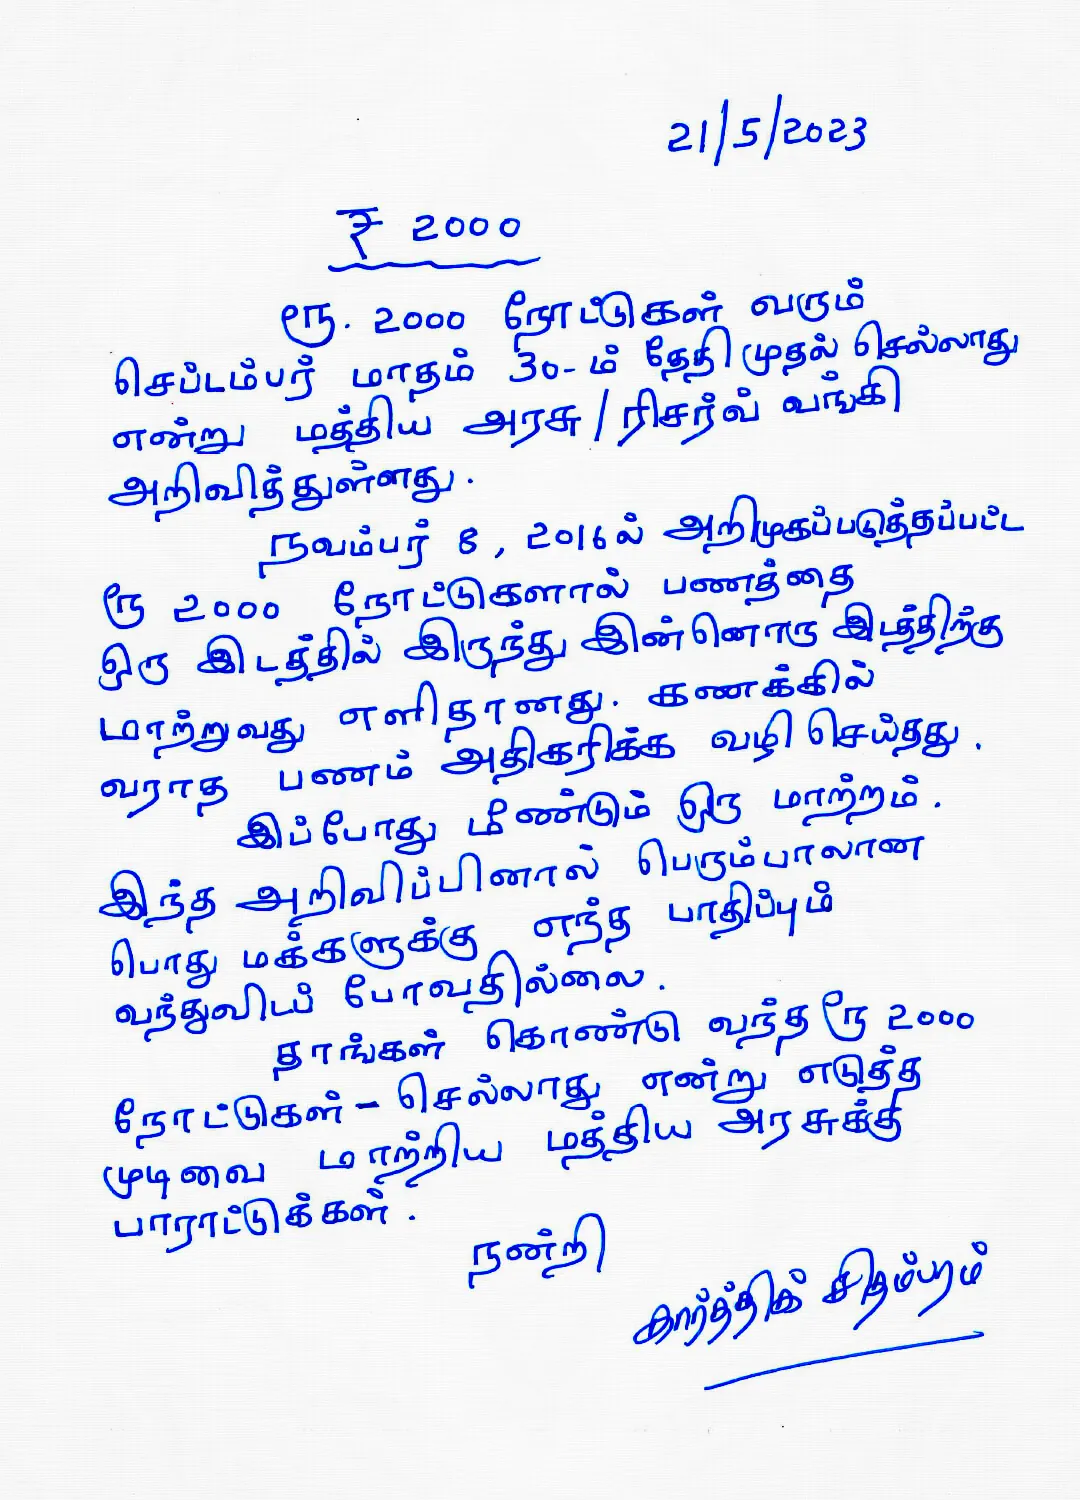 21/5/2023
₹ 2000
ரூ. 2000 நோட்டுகள் வரும்
செப்டம்பர் மாதம் 30-ம் தேதி முதல் செல்லாது
என்று மத்திய அரசு / ரிசர்வ் வங்கி
அறிவித்துள்ளது.
நவம்பர் 8, 2016ல் அறிமுகப்படுத்தப்பட்ட
ரூ 2000 நோட்டுகளால் பணத்தை
ஒரு இடத்தில் இருந்து இன்னொரு இடத்திற்கு
மாற்றுவது எளிதானது. கணக்கில்
வராத பணம் அதிகரிக்க வழி செய்தது.
இப்போது மீண்டும் ஒரு மாற்றம்.
இந்த அறிவிப்பினால் பெரும்பாலான
பொது மக்களுக்கு எந்த பாதிப்பும்
வந்துவிடப் போவதில்லை.
தாங்கள் கொண்டு வந்த ரூ 2000
நோட்டுகள் - செல்லாது என்று எடுத்த
முடிவை மாற்றிய மத்திய அரசுக்கு
பாராட்டுக்கள்.
நன்றி
கார்த்திக் சிதம்பரம்